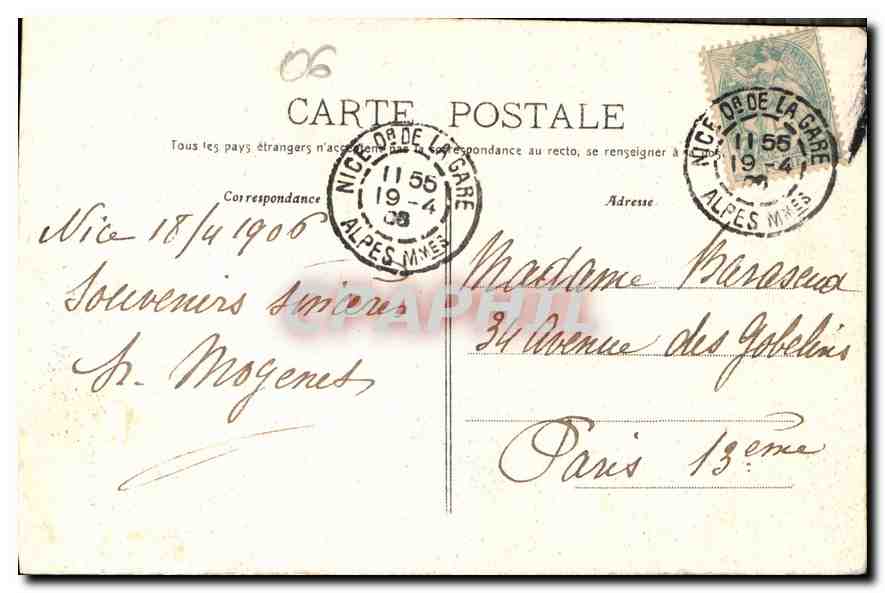 06
CARTE POSTALE
Tous les pays étrangers n'acceptent pas la correspondance au recto, se renseigner à la
Correspondance
Adresse
NICE Dn DE LA GARE
11 55
19 -4
06
ALPES MMES
NICE Dn DE LA GARE
11 55
19 -4
ALPES MMES
Nice 18/4 1906
Souvenirs sincères
Mogenet
Madame
34 Avenue des Gobelins
Paris 13ème
CPAPHIL